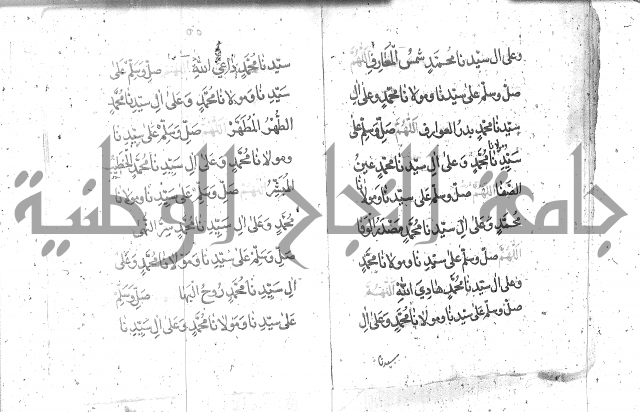 وعلى ال سيدنا محمد شمس المعارف اللهم
صل وسلم على سيدنا ومولانا محمد وعلى ال
سيدنا محمد بدر العوارف اللهم صل وسلم على
سيدنا ومولانا محمد وعلى ال سيدنا محمد عين
الصفا اللهم صل وسلم على سيدنا ومولانا
محمد وعلى ال سيدنا محمد مصدر الوفا
اللهم صل وسلم على سيدنا ومولانا محمد
وعلى ال سيدنا محمد هادي الله اللهم
صل وسلم على سيدنا ومولانا محمد وعلى ال
سيدنا
سيدنا محمد داعي الله اللهم صل وسلم على
سيدنا ومولانا محمد وعلى ال سيدنا محمد
الطهر المطهر اللهم صل وسلم على سيدنا
ومولانا محمد وعلى ال سيدنا محمد
المبشر اللهم صل وسلم على سيدنا ومولانا
محمد وعلى ال سيدنا محمد سر النهى
صل وسلم على سيدنا ومولانا محمد وعلى
ال سيدنا محمد روح البها صل وسلم
على سيدنا ومولانا محمد وعلى ال سيدنا
جامعة النجاح الوطنية